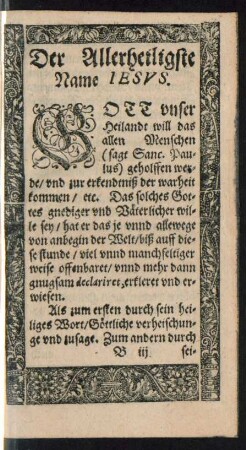 Der Allerheiligste
Name IESVS.
GOTT vnser
Heilandt will das
allen Menschen
(sagt Sanc. Pau-
lus) geholffen wer-
de/ vnd zur erkendtniß der warheit
kommen/ etc. Das solches Got-
tes gnediger vnd Väterlicher wil-
le sey/ hat er das je vnnd allewege
von anbegin der Welt/ biß auff die-
se stunde/ viel vnnd manchfeltiger
weise offenbaret/ vnnd mehr dann
gnugsam declariret, erkleret vnd er-
wiesen.
Als zum ersten durch sein hei-
liges Wort/ Göttliche verheischun-
ge vnd zusage. Zum andern durch
B iij sei-